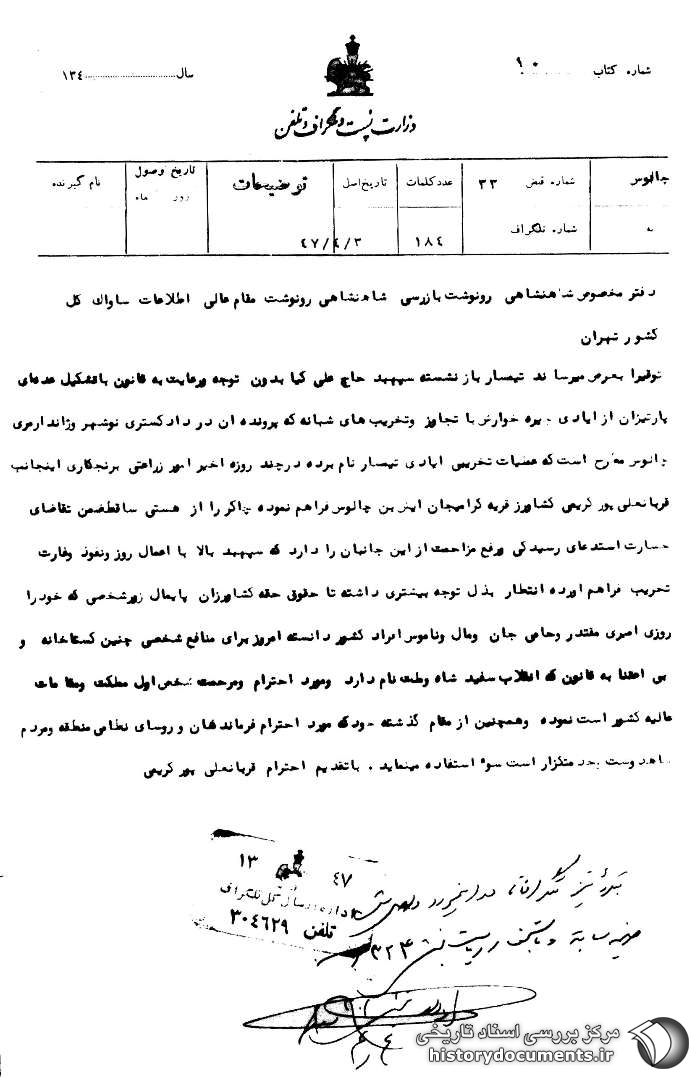 شماره کتاب ۹۰
سال ۱۳۴
وزارت پست و تلگراف و تلفن
چالوس
شماره قبض ۳۳
عدد کلمات
تاریخ اصل
توضیحات
تاریخ وصول
روز ماه
نام گیرنده
به
شماره تلگراف
۱۸۴
۴۷/۴/۳
دفتر مخصوص شاهنشاهی رونوشت بازرسی شاهنشاهی رونوشت مقام عالی اطلاعات ساواك كل
کشور تهران
توقیرا بعرض میرساند تیمسار بازنشسته سپهبد حاج علی کیا بدون توجه ورعایت به قانون باتشکیل عده‌ای
پارتیزان از ایادی جیره خوارش با تجاوز وتخریب های شبانه که پرونده ان در دادگستری نوشهر وژاندارمری
چالوس مطرح است که عملیات تخریبی ایادی تیمسار نام برده درچند روزه اخیر امور زراعتی برنجکاری اینجانب
قربانعلی پور کریمی کشاورز قریه کرامیجان چالوس فراهم نموده چاکر را از هستی ساقط ضمن تقاضای
جسارت استدعای رسیدگی ورفع مزاحمت از این جانبان را دارد که سپهبد بالا با اعمال روز ونفوذ وغارت
تخریب فراهم اورده انتظار بذل توجه بیشتری داشته تا حقوق حقه کشاورزان پایمال زورشخصی که خود را
روزی امیری مقتدر وحامی جان ومال وناموس افراد کشور دانسته امروز برای منافع شخصی چنین گستاخانه و
بی اعتنا به قانون که انقلاب سفید شاه وملت نام دارد ومورد احترام ومرحمت شخص اول مملکت ومقامات
عالیه کشور است نموده وهمچنین از مقام گذشته خود که مورد احترام فرماندهان و روسای نظامی منطقه ومردم
شاهدوست وخدمتگزار است سوء استفاده مینماید . باتقدیم احترام قربانعلی پور کریمی
۱۳ ۴۷
اداره ارسال کل تلگرافی
تلفن ۳۰۴۶۲۹
۳۲۴
۴/۴
مرکز بررسی اسناد تاریخی
historydocuments.ir